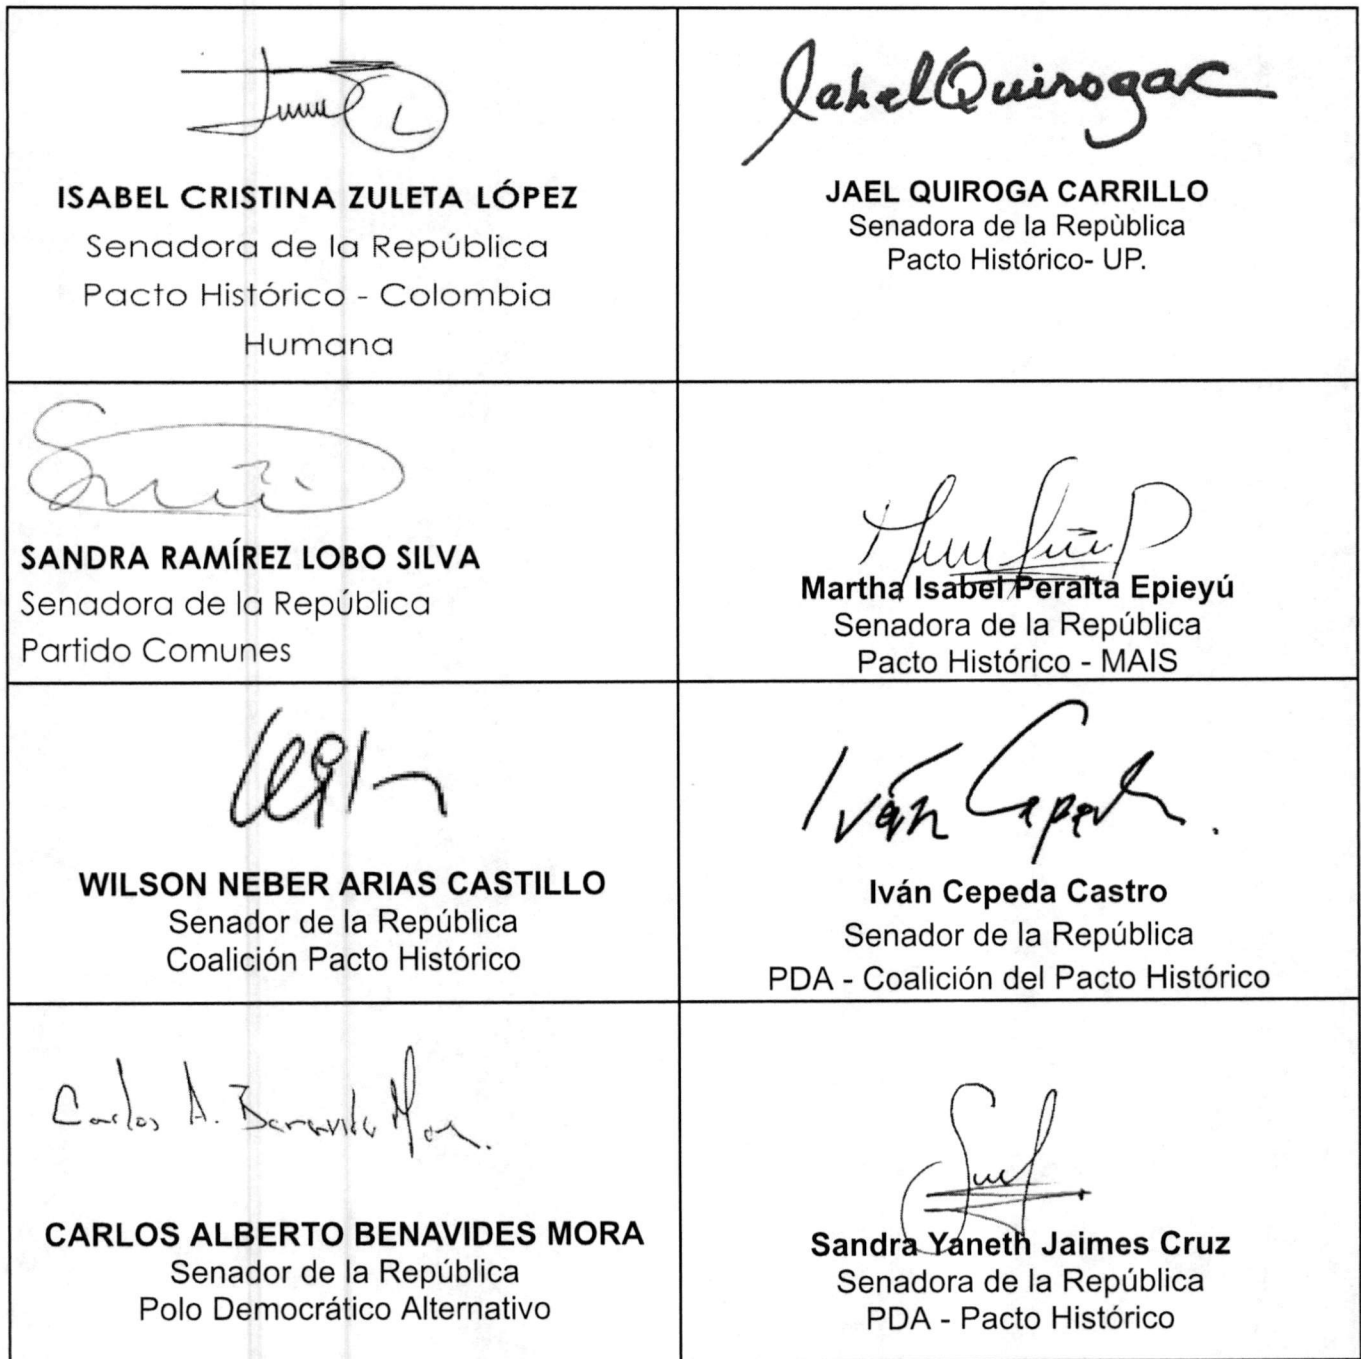 ISABEL CRISTINA ZULETA LÓPEZ
Senadora de la República
Pacto Histórico - Colombia
Humana
JahelQuirogaC
JAEL QUIROGA CARRILLO
Senadora de la Repùblica
Pacto Histórico- UP.
SANDRA RAMÍREZ LOBO SILVA
Senadora de la República
Partido Comunes
Martha Isabel Peralta Epieyú
Senadora de la República
Pacto Histórico - MAIS
WILSON NEBER ARIAS CASTILLO
Senador de la República
Coalición Pacto Histórico
Iván Cepeda.
Iván Cepeda Castro
Senador de la República
PDA - Coalición del Pacto Histórico
Carlos A. Benavides Mora.
CARLOS ALBERTO BENAVIDES MORA
Senador de la República
Polo Democrático Alternativo
Sandra Yaneth Jaimes Cruz
Senadora de la República
PDA - Pacto Histórico